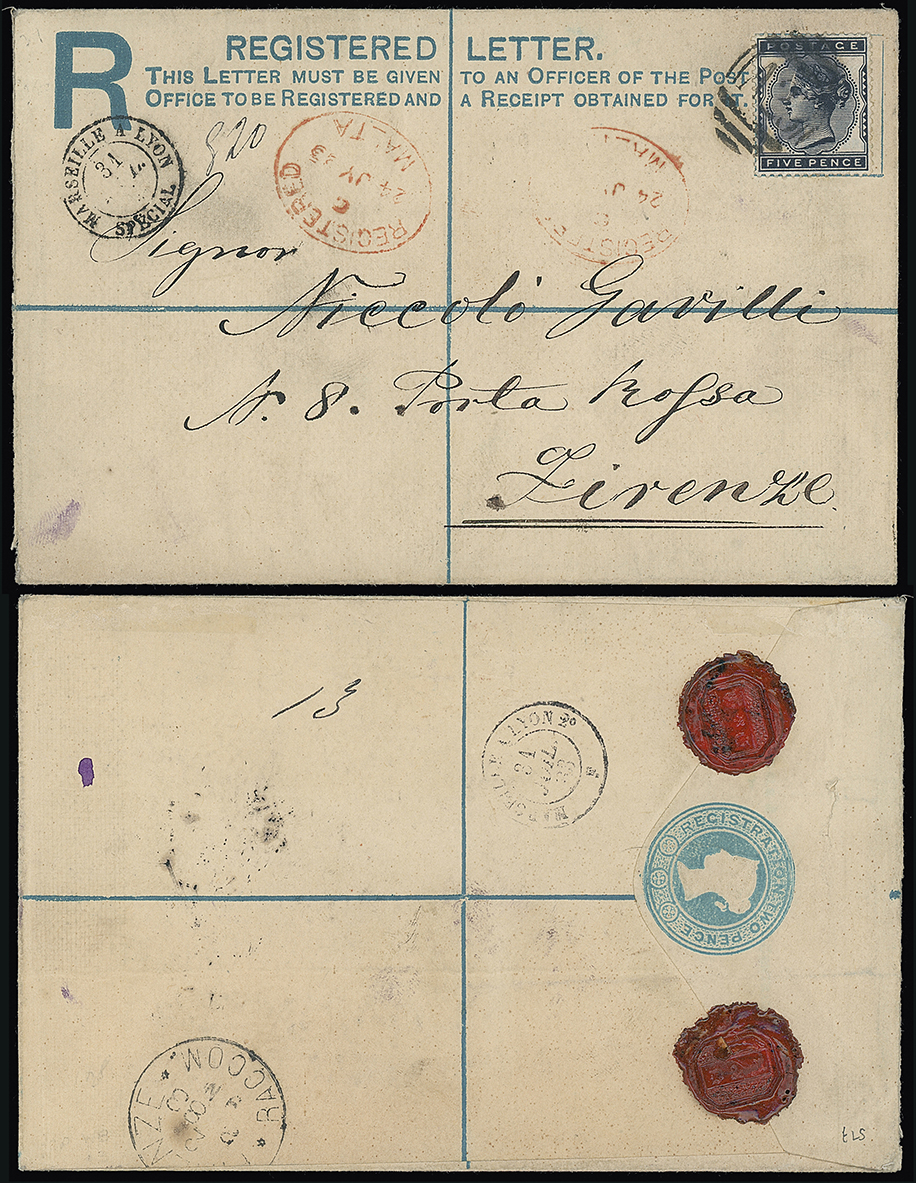 R
REGISTERED LETTER.
THIS LETTER MUST BE GIVEN TO AN OFFICER OF THE POST
OFFICE TO BE REGISTERED AND A RECEIPT OBTAINED FOR IT.
POSTAGE
FIVE PENCE
MARSEILLE A LYON
31
SPECIAL
920
REGISTERED
C
24 JY 83
MALTA
REGISTE
C
24 J
MAL
Signor
Niccolò Gavilli
N. 8. Porta Rossa
Firenze
13
MARSEILLE A LYON 2º
31
JUIL
83
REGISTRATION TWO PENCE
NZE * RACCOM *